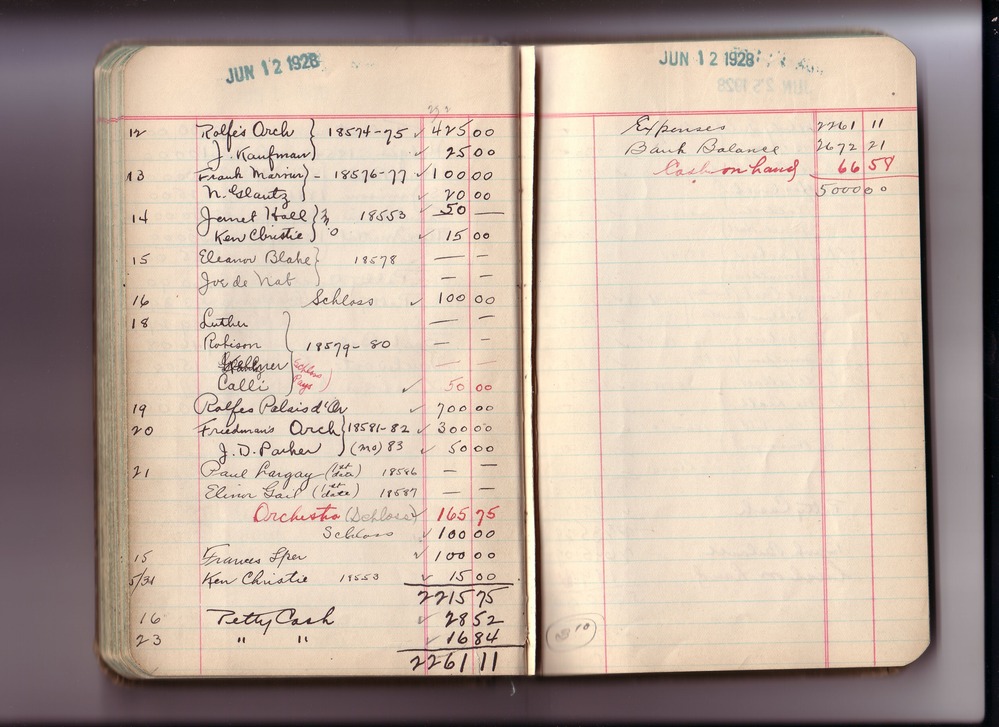 JUN 12 1928
12 Rolfe's Orch } 18574-75 ✓ 425 00
J. Kaufman ) ✓ 25 00
13 Frank Marvin } - 18576-77 ✓ 100 00
N. Glantz ) ✓ 20 00
14 Jemet Hall } 18553 50 —
Ken Christie ) ✓ 15 00
15 Eleanor Blake } 18578 — —
Joe de Nat — —
16 Schloss ✓ 100 00
18 Luther — —
Robison } 18579-80 — —
— —
Calli (Schloss Pays) ✓ 50 00
19 Rolfes Palais d'Or ✓ 700 00
20 Friedman's Orch } 18581-82 ✓ 300 00
J. D. Parker (mo) 83 ✓ 50 00
21 Paul Largay (1st date) 18586 — —
Elinor Gail (1st date) 18587 — —
Orchestra (Schloss) ✓ 165 75
Schloss ✓ 100 00
15 Frances Sper ✓ 100 00
5/31 Ken Christie 18553 ✓ 15 00
2215 75
16 Petty Cash ✓ 28 52
23 " " ✓ 16 84
2261 11
JUN 12 1928
JUN 25 1928
Expenses 2261 11
Bank Balance 2672 21
Cash on hand 66 58
5000 00